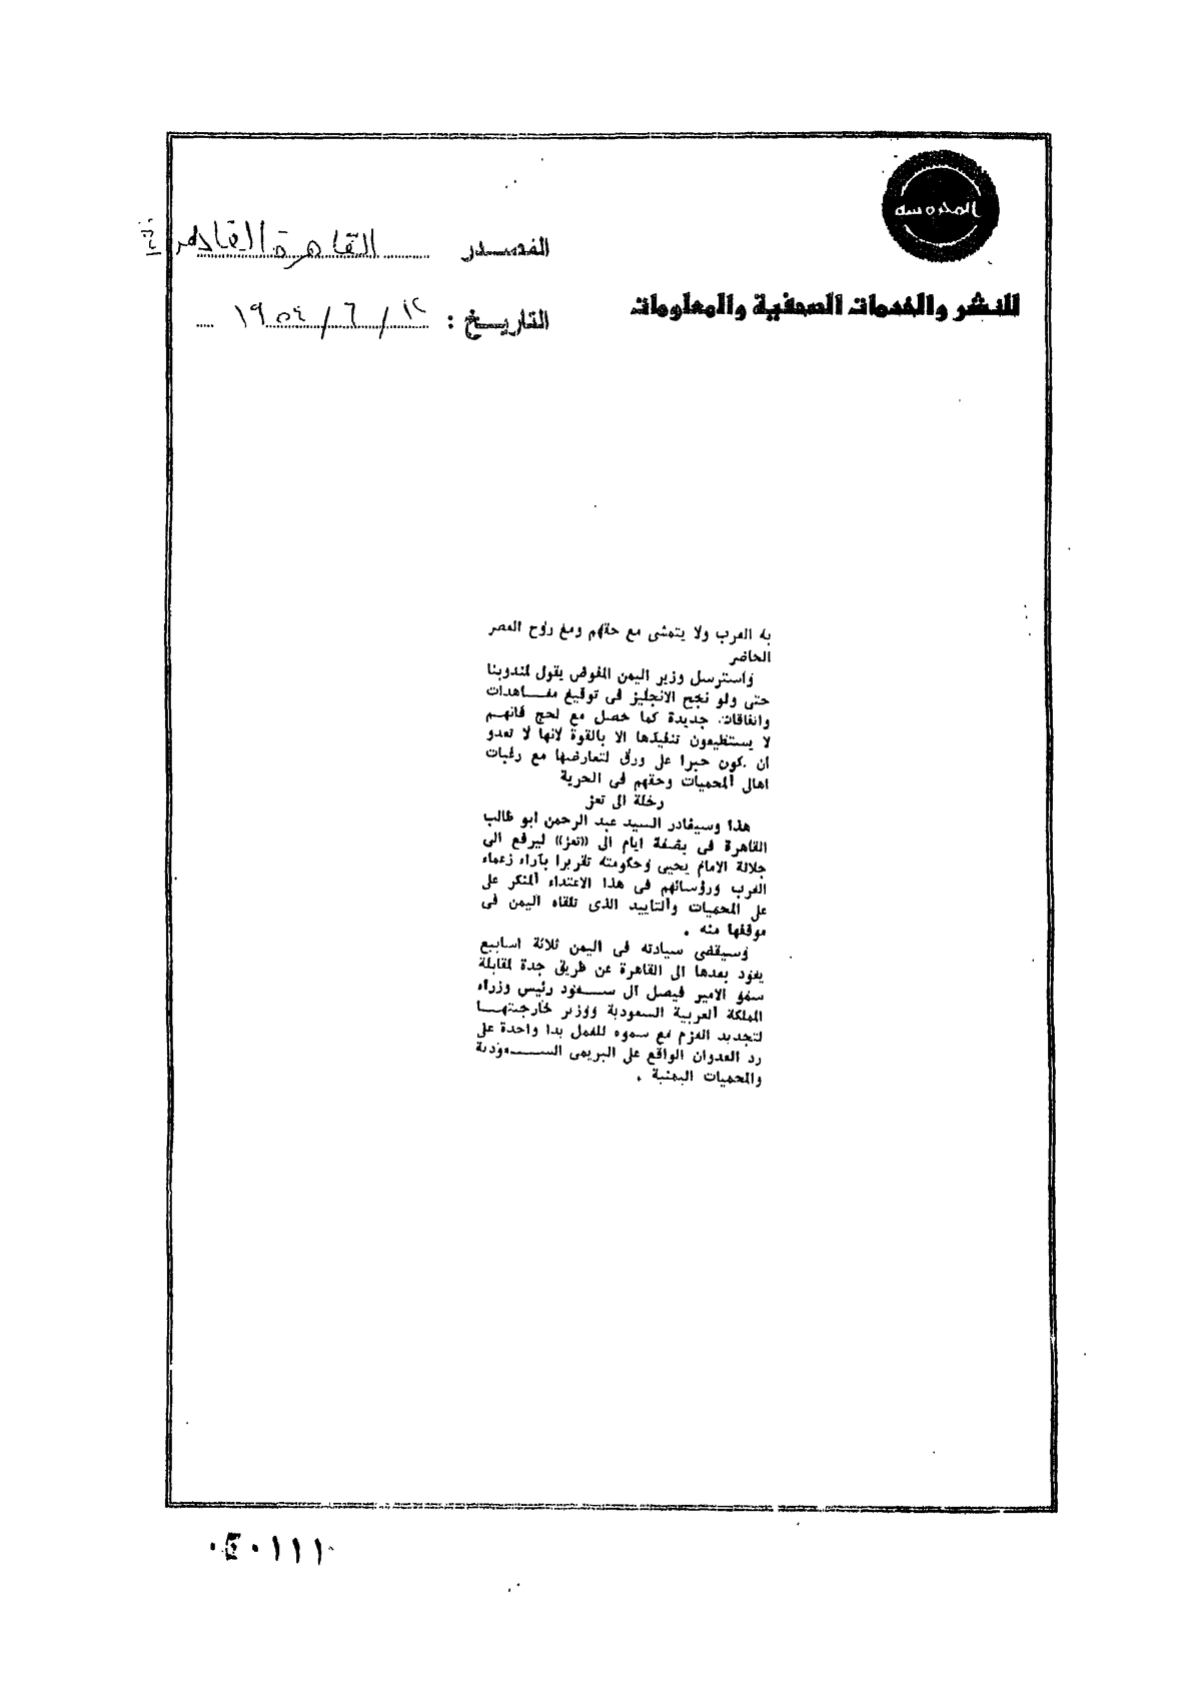 المحروسه
للنشر والخدمات الصحفية والمعلومات
المصدر القاهرة القاهرية
التاريخ : ١٢ / ٦ / ١٩٥٤
به العرب ولا يتمشى مع حقهم ومع روح العصر
الحاضر
واسترسل وزير اليمن المفوض يقول لمندوبنا
حتى ولو نجح الانجليز فى توقيع معــاهدات
واتفاقات جديدة كما حصل مع لحج فانهــم
لا يستطيعون تنفيذها الا بالقوة لانها لا تعدو
ان تكون حبرا على ورق لتعارضها مع رغبات
اهالى المحميات وحقهم فى الحرية
رحلة الى تعز
هذا وسيغادر السيد عبد الرحمن ابو طالب
القاهرة فى بضعة ايام الى «تعز» ليرفع الى
جلالة الامام يحيى وحكومته تقريرا بآراء زعماء
العرب ورؤسائهم فى هذا الاعتداء المنكر على
على المحميات والتاييد الذى تلقاه اليمن فى
موقفها منه .
وسيقضى سيادته فى اليمن ثلاثة اسابيع
يعود بعدها الى القاهرة عن طريق جدة لمقابلة
سمو الامير فيصل ال ســعود رئيس وزراء
المملكة العربية السعودية ووزير خارجيتهــا
لتجديد العزم مع سموه للعمل يدا واحدة على
رد العدوان الواقع على البريمى الســـعودية
والمحميات اليمنية .